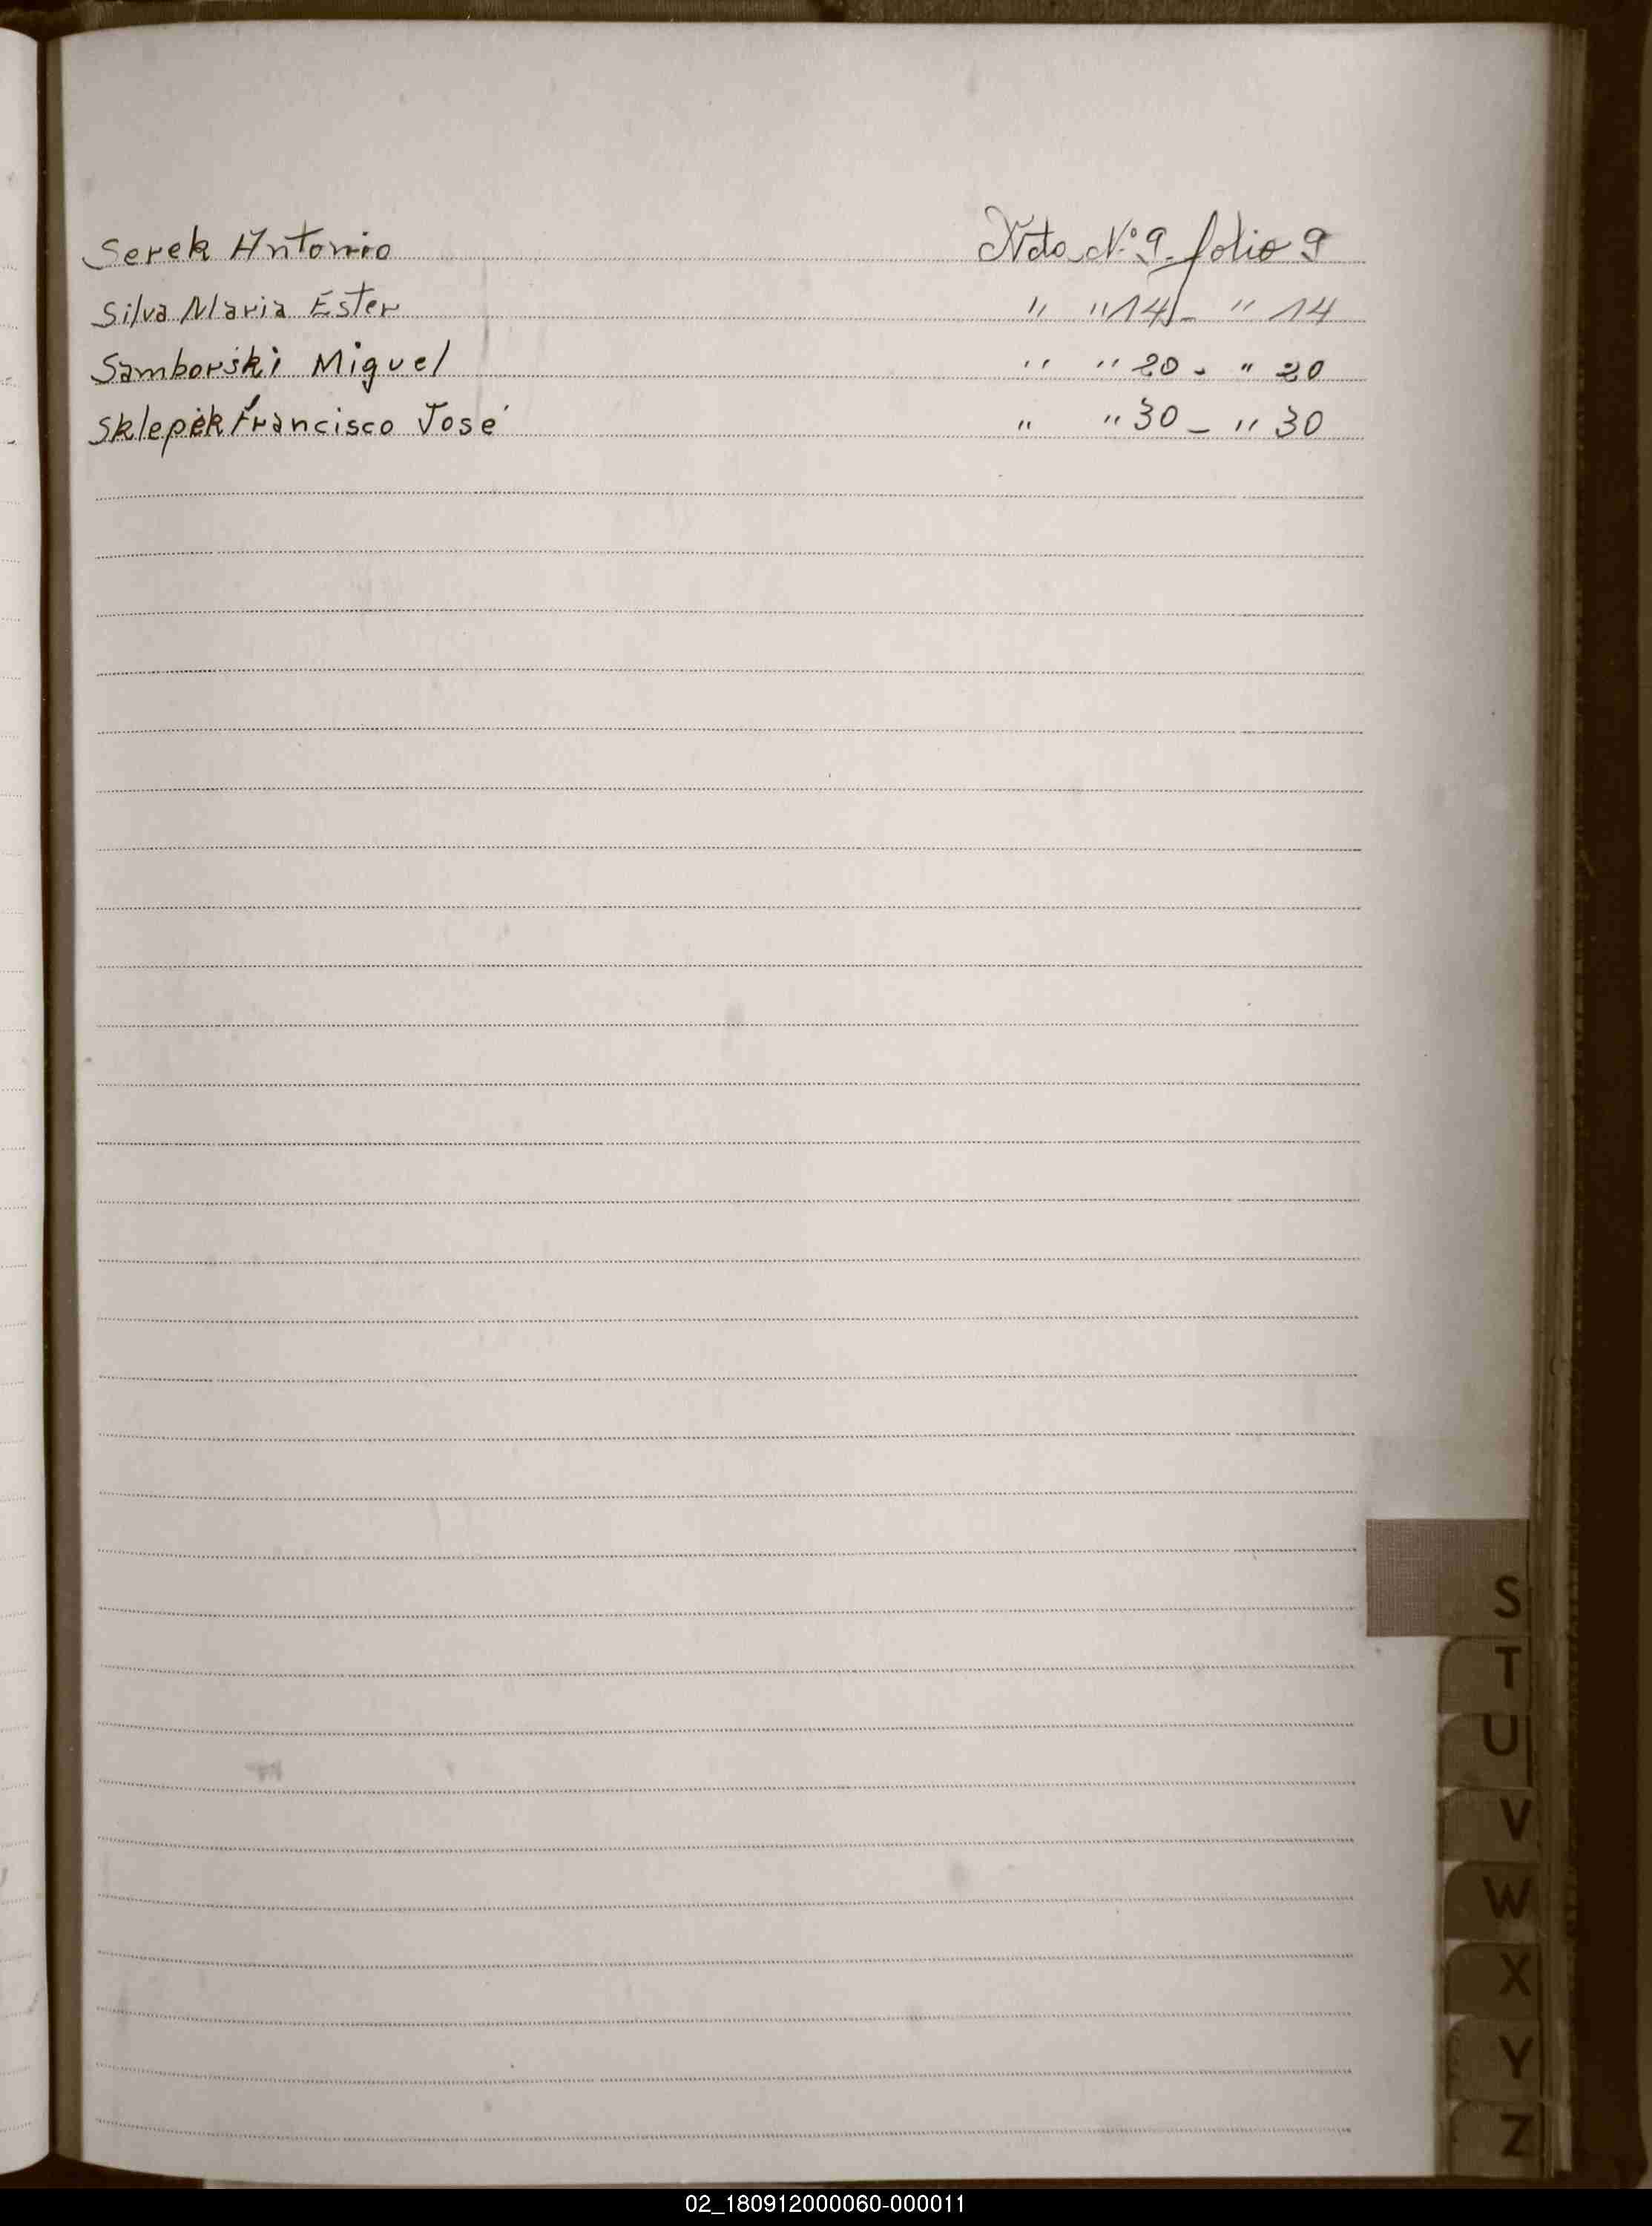 Serek Antonio Nota Nº 9. folio 9
Silva Maria Ester " " 14 - " 14
Samborski Miguel " " 20 - " 20
Sklepek Francisco José " " 30 - " 30
S
T
U
V
W
X
Y
Z
02_180912000060-000011